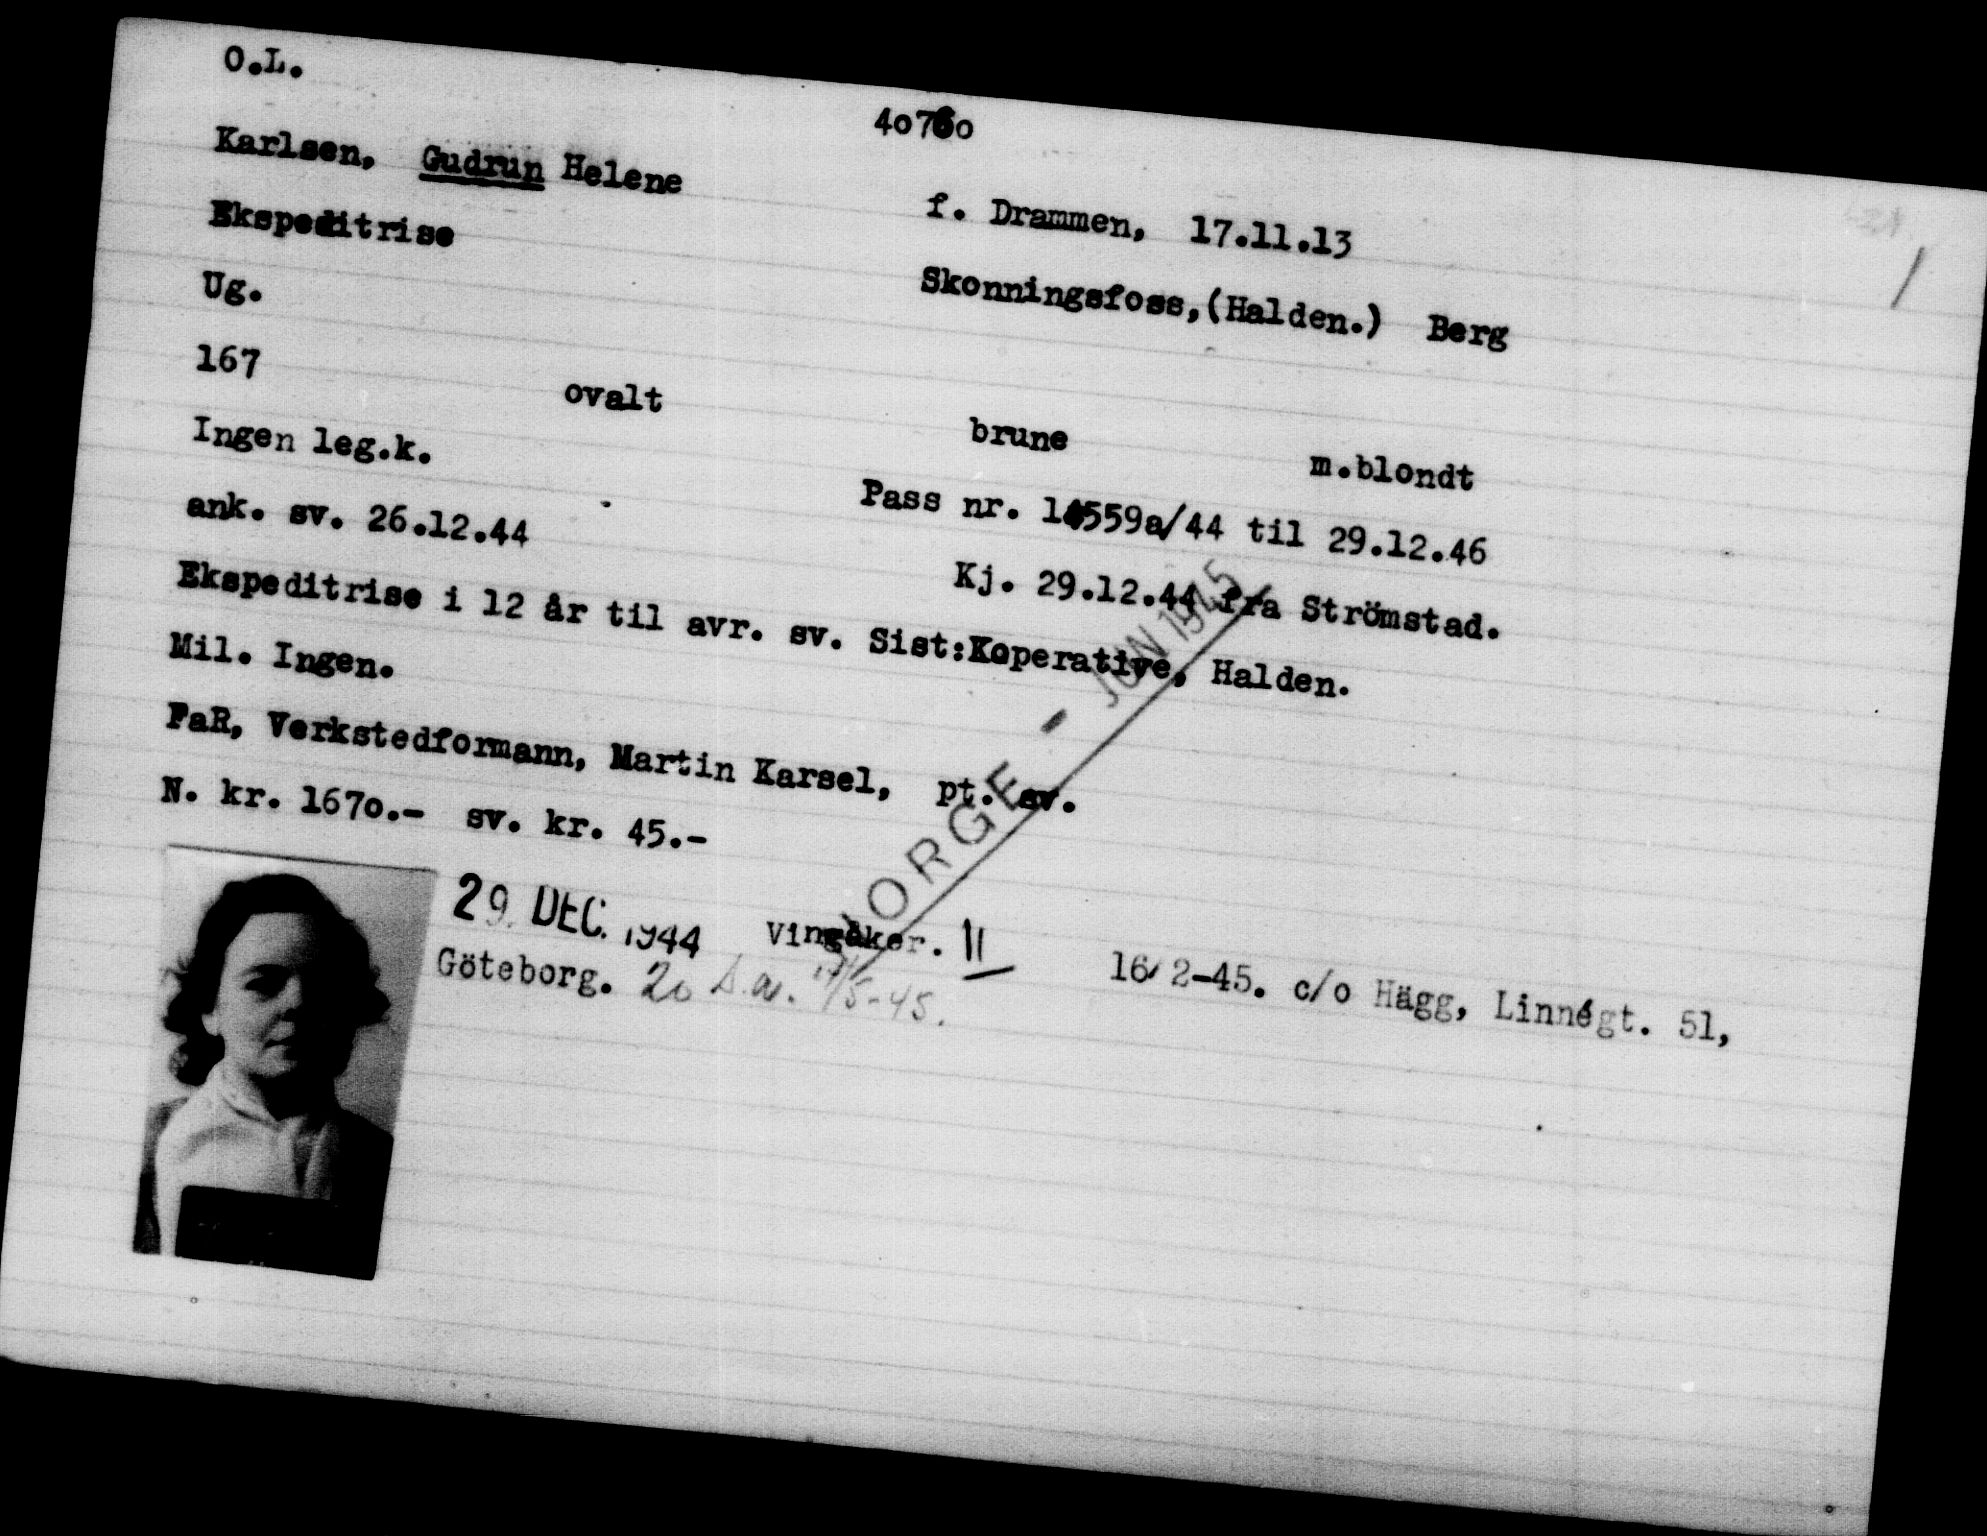 O.L.
40760
Karlsen, Gudrun Helene
f. Drammen, 17.11.13
Ekspeditrise
Skonningsfoss,(Halden.) Berg
Ug.
167 ovalt brune m.blondt
Ingen leg.k.
Pass nr. 14559a/44 til 29.12.46
ank. sv. 26.12.44
Kj. 29.12.44 fra Strömstad.
Ekspeditrise i 12 år til avr. sv. Sist:Koperative, Halden.
Mil. Ingen.
FaR, Verkstedformann, Martin Karsel, pt. sv.
N. kr. 1670.- sv. kr. 45.-
NORGE - JUN 1945
29. DEC. 1944 Vingåker. II 16/2-45. c/o Hägg, Linnégt. 51,
Göteborg. 20 17/5-45.